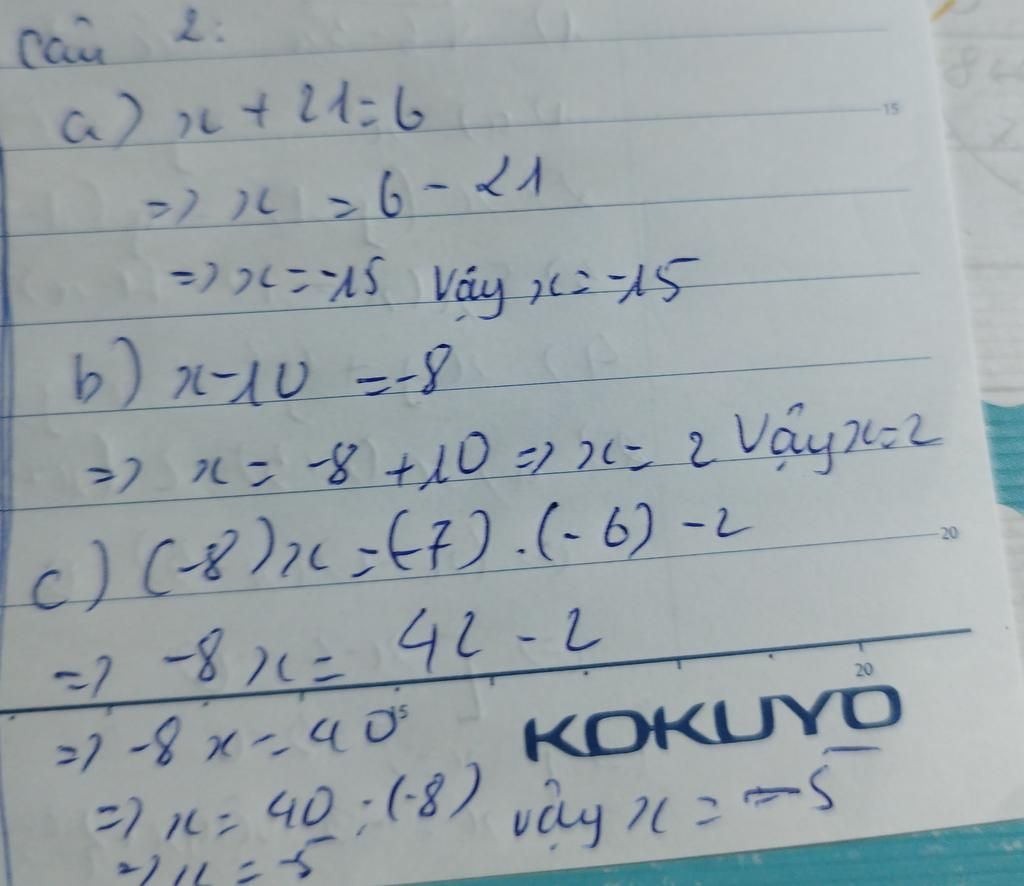 Câu 2:
a) x + 21 = 6
15
=> x = 6 - 21
=> x = -15 Vậy x = -15
b) x - 10 = -8
=> x = -8 + 10 => x = 2 Vậy x = 2
c) (-8)x = (-7) . (-6) - 2
20
=> -8x = 42 - 2
20
15
=> -8x = 40
KOKUYO
=> x = 40 : (-8) vậy x = -5
=> x = -5